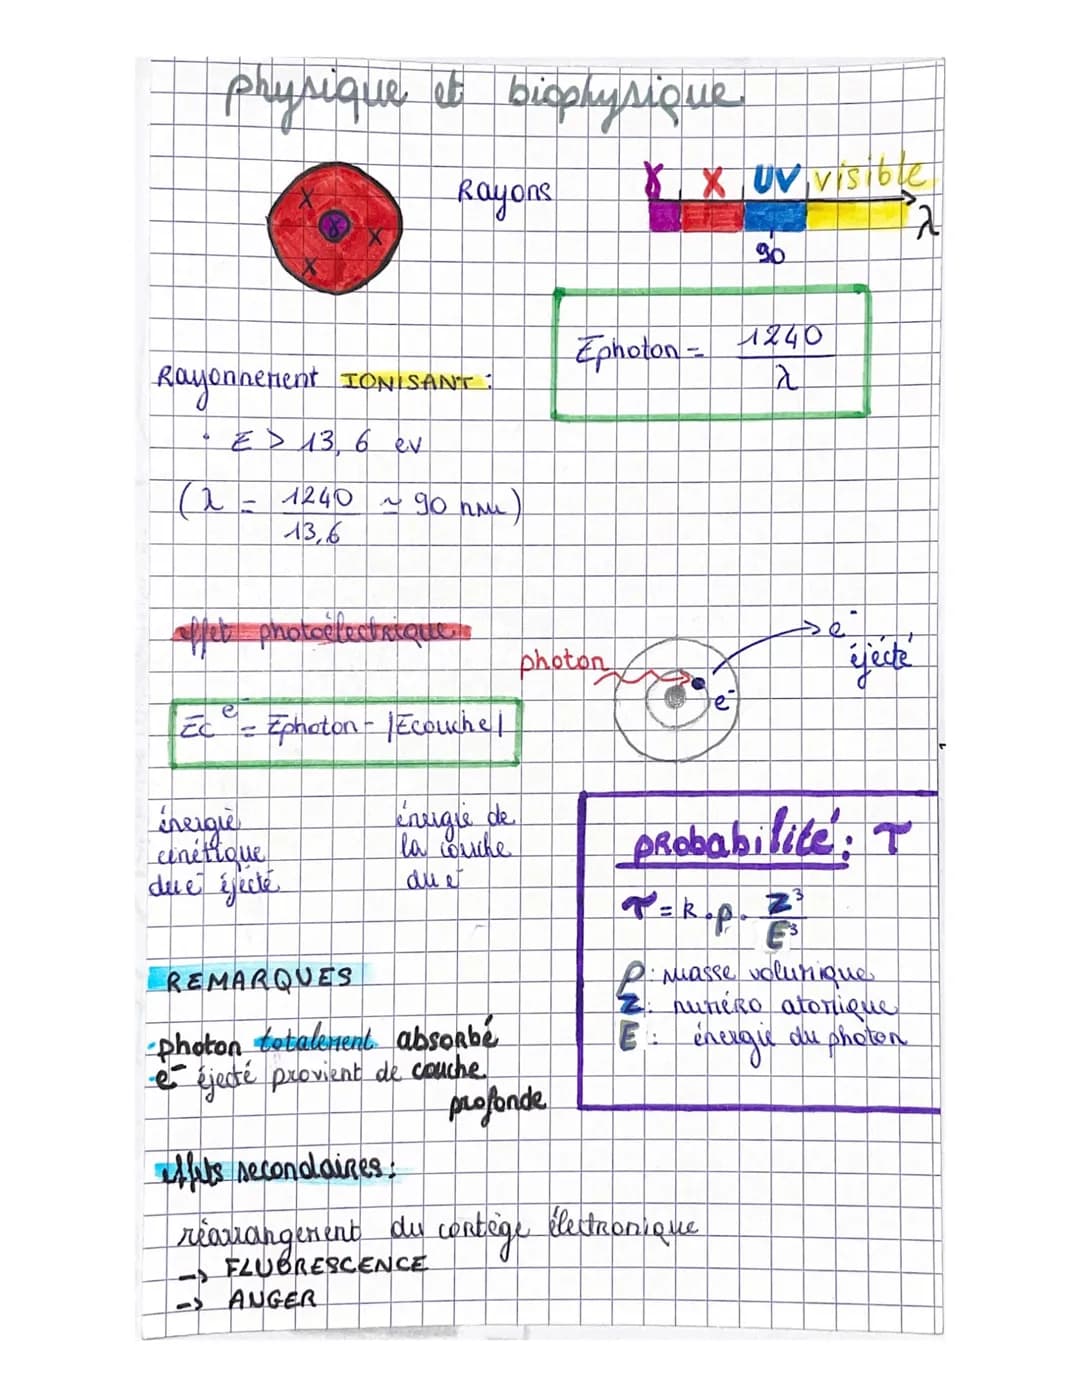 physique et biophysique
X
γ
X
X
Rayons
γ X UV visible
λ
90
Ephoton = 1240
λ
Rayonnement IONISANT :
• E > 13,6 ev
(λ = 1240 ≃ 90 nm)
13,6
effet photoélectrique
photon
e⁻
éjecté
e⁻
Ec e⁻ = Ephoton - |Ecouche|
énergie
cinétique
du e⁻ éjecté
énergie de
la couche
du e⁻
probabilité : τ
τ = k . ρ . Z³
E³
ρ : masse volumique
Z : numéro atomique
E : énergie du photon
REMARQUES
• photon totalement absorbé
• e⁻ éjecté provient de couche
profonde
effets secondaires :
réarrangement du cortège électronique
→ FLUORESCENCE
→ ANGER